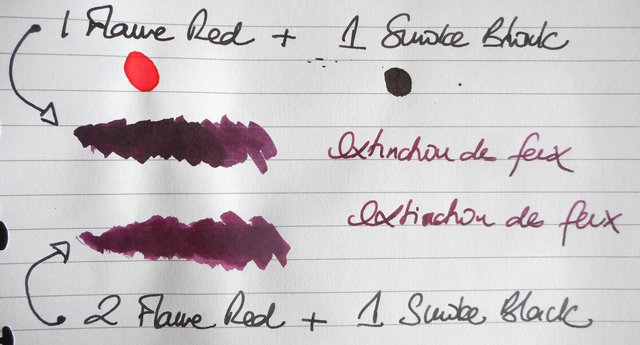 1 Flame Red + 1 Smoke Black
extinction des feux
extinction des feux
2 Flame Red + 1 Smoke Black